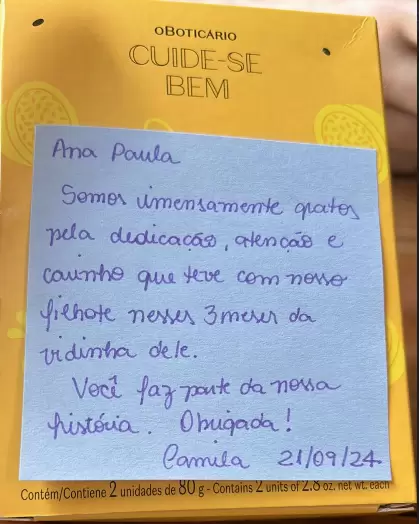 oBOTICÁRIO
CUIDE-SE
BEM
Ana Paula
Somos imensamente gratos
pela dedicação, atenção e
carinho que teve com nosso
filhote nesses 3 meses da
vidinha dele.
Você faz parte da nossa
história. Obrigada!
Camila 21/09/24
Contém/Contiene 2 unidades de 80 g - Contains 2 units of 2.8 oz. net wt. each